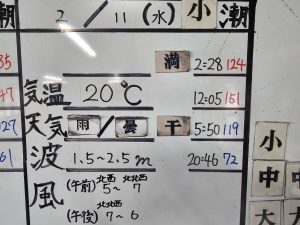 2/11(水) 小潮
満 2=28 124
35
気温 20℃ 12=05 161
47
天気 雨/曇 干 5=50 119
127
波 1.5~2.5m 20=46 72
61
風 (午前) 北西 5~ 北北西 7
(午後) 北北西 7~6
小
中
大